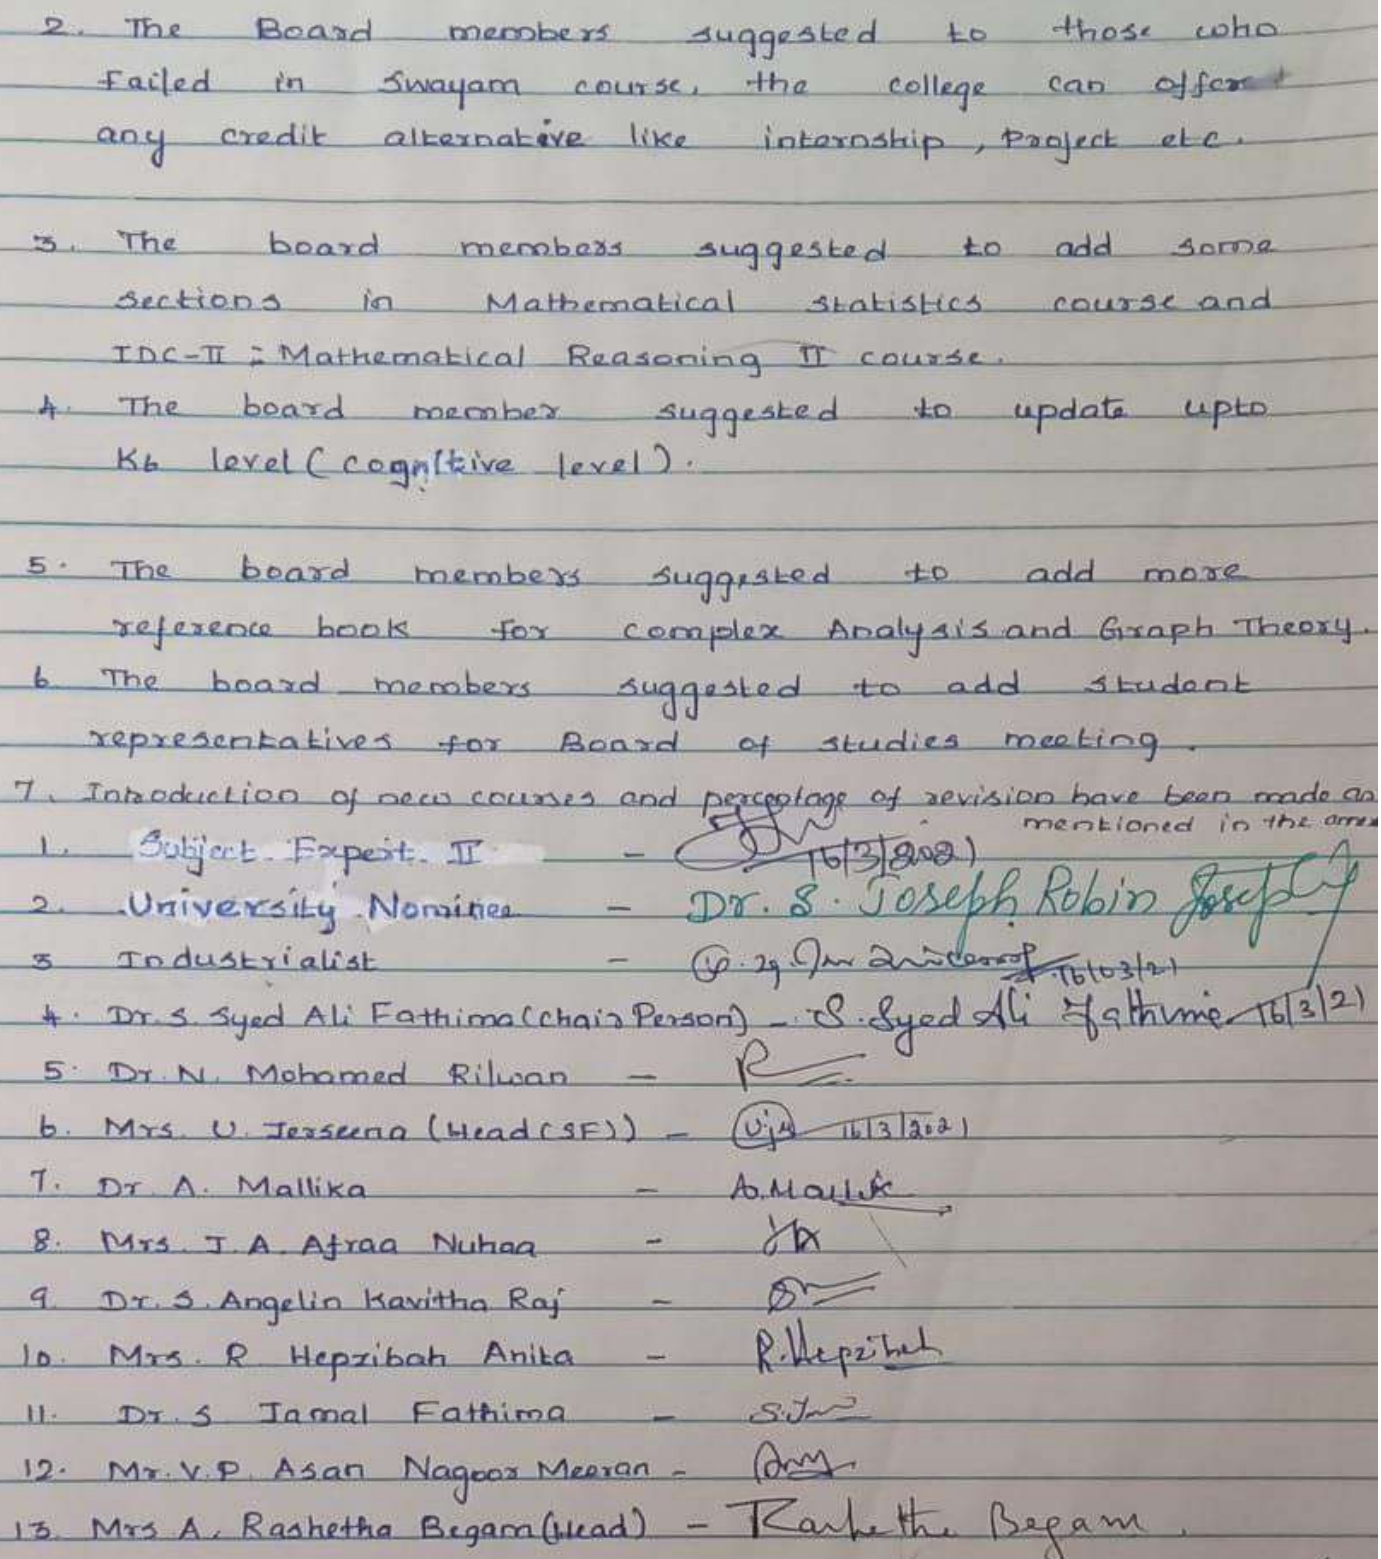 2. The Board members suggested to those who
Failed in Swayam course, the college can offer
any credit alternative like internship, Project etc.
3. The board members suggested to add some
sections in Mathematical Statistics course and
IDC-II : Mathematical Reasoning II course.
4. The board member suggested to update upto
K6 level (cognitive level).
5. The board members suggested to add more
reference book for complex Analysis and Graph Theory.
6 The board members suggested to add student
representatives for Board of studies meeting.
7. Introduction of new courses and percentage of revision have been made as
mentioned in the
1. Subject Expert II - 16/3/2021
2. University Nominee - Dr. S. Joseph Robin
3 Industrialist - 16/03/21
4. Dr. S. Syed Ali Fathima (Chair Person) - S. Syed Ali Fathima 16/3/21
5. Dr. N. Mohamed Rilwan -
6. Mrs. U. Jerseena (Head (SF)) - 16/3/2021
7. Dr. A. Mallika - A. Mallik
8. Mrs. J. A. Afraa Nuhaa -
9. Dr. S. Angelin Kavitha Raj -
10. Mrs. R Hepzibah Anita - R. Hepzibah
11. Dr. S Jamal Fathima -
12. Mr. V. P. Asan Nagoor Meeran -
13. Mrs A. Rashetha Begam (Head) - Rashetha Begam.